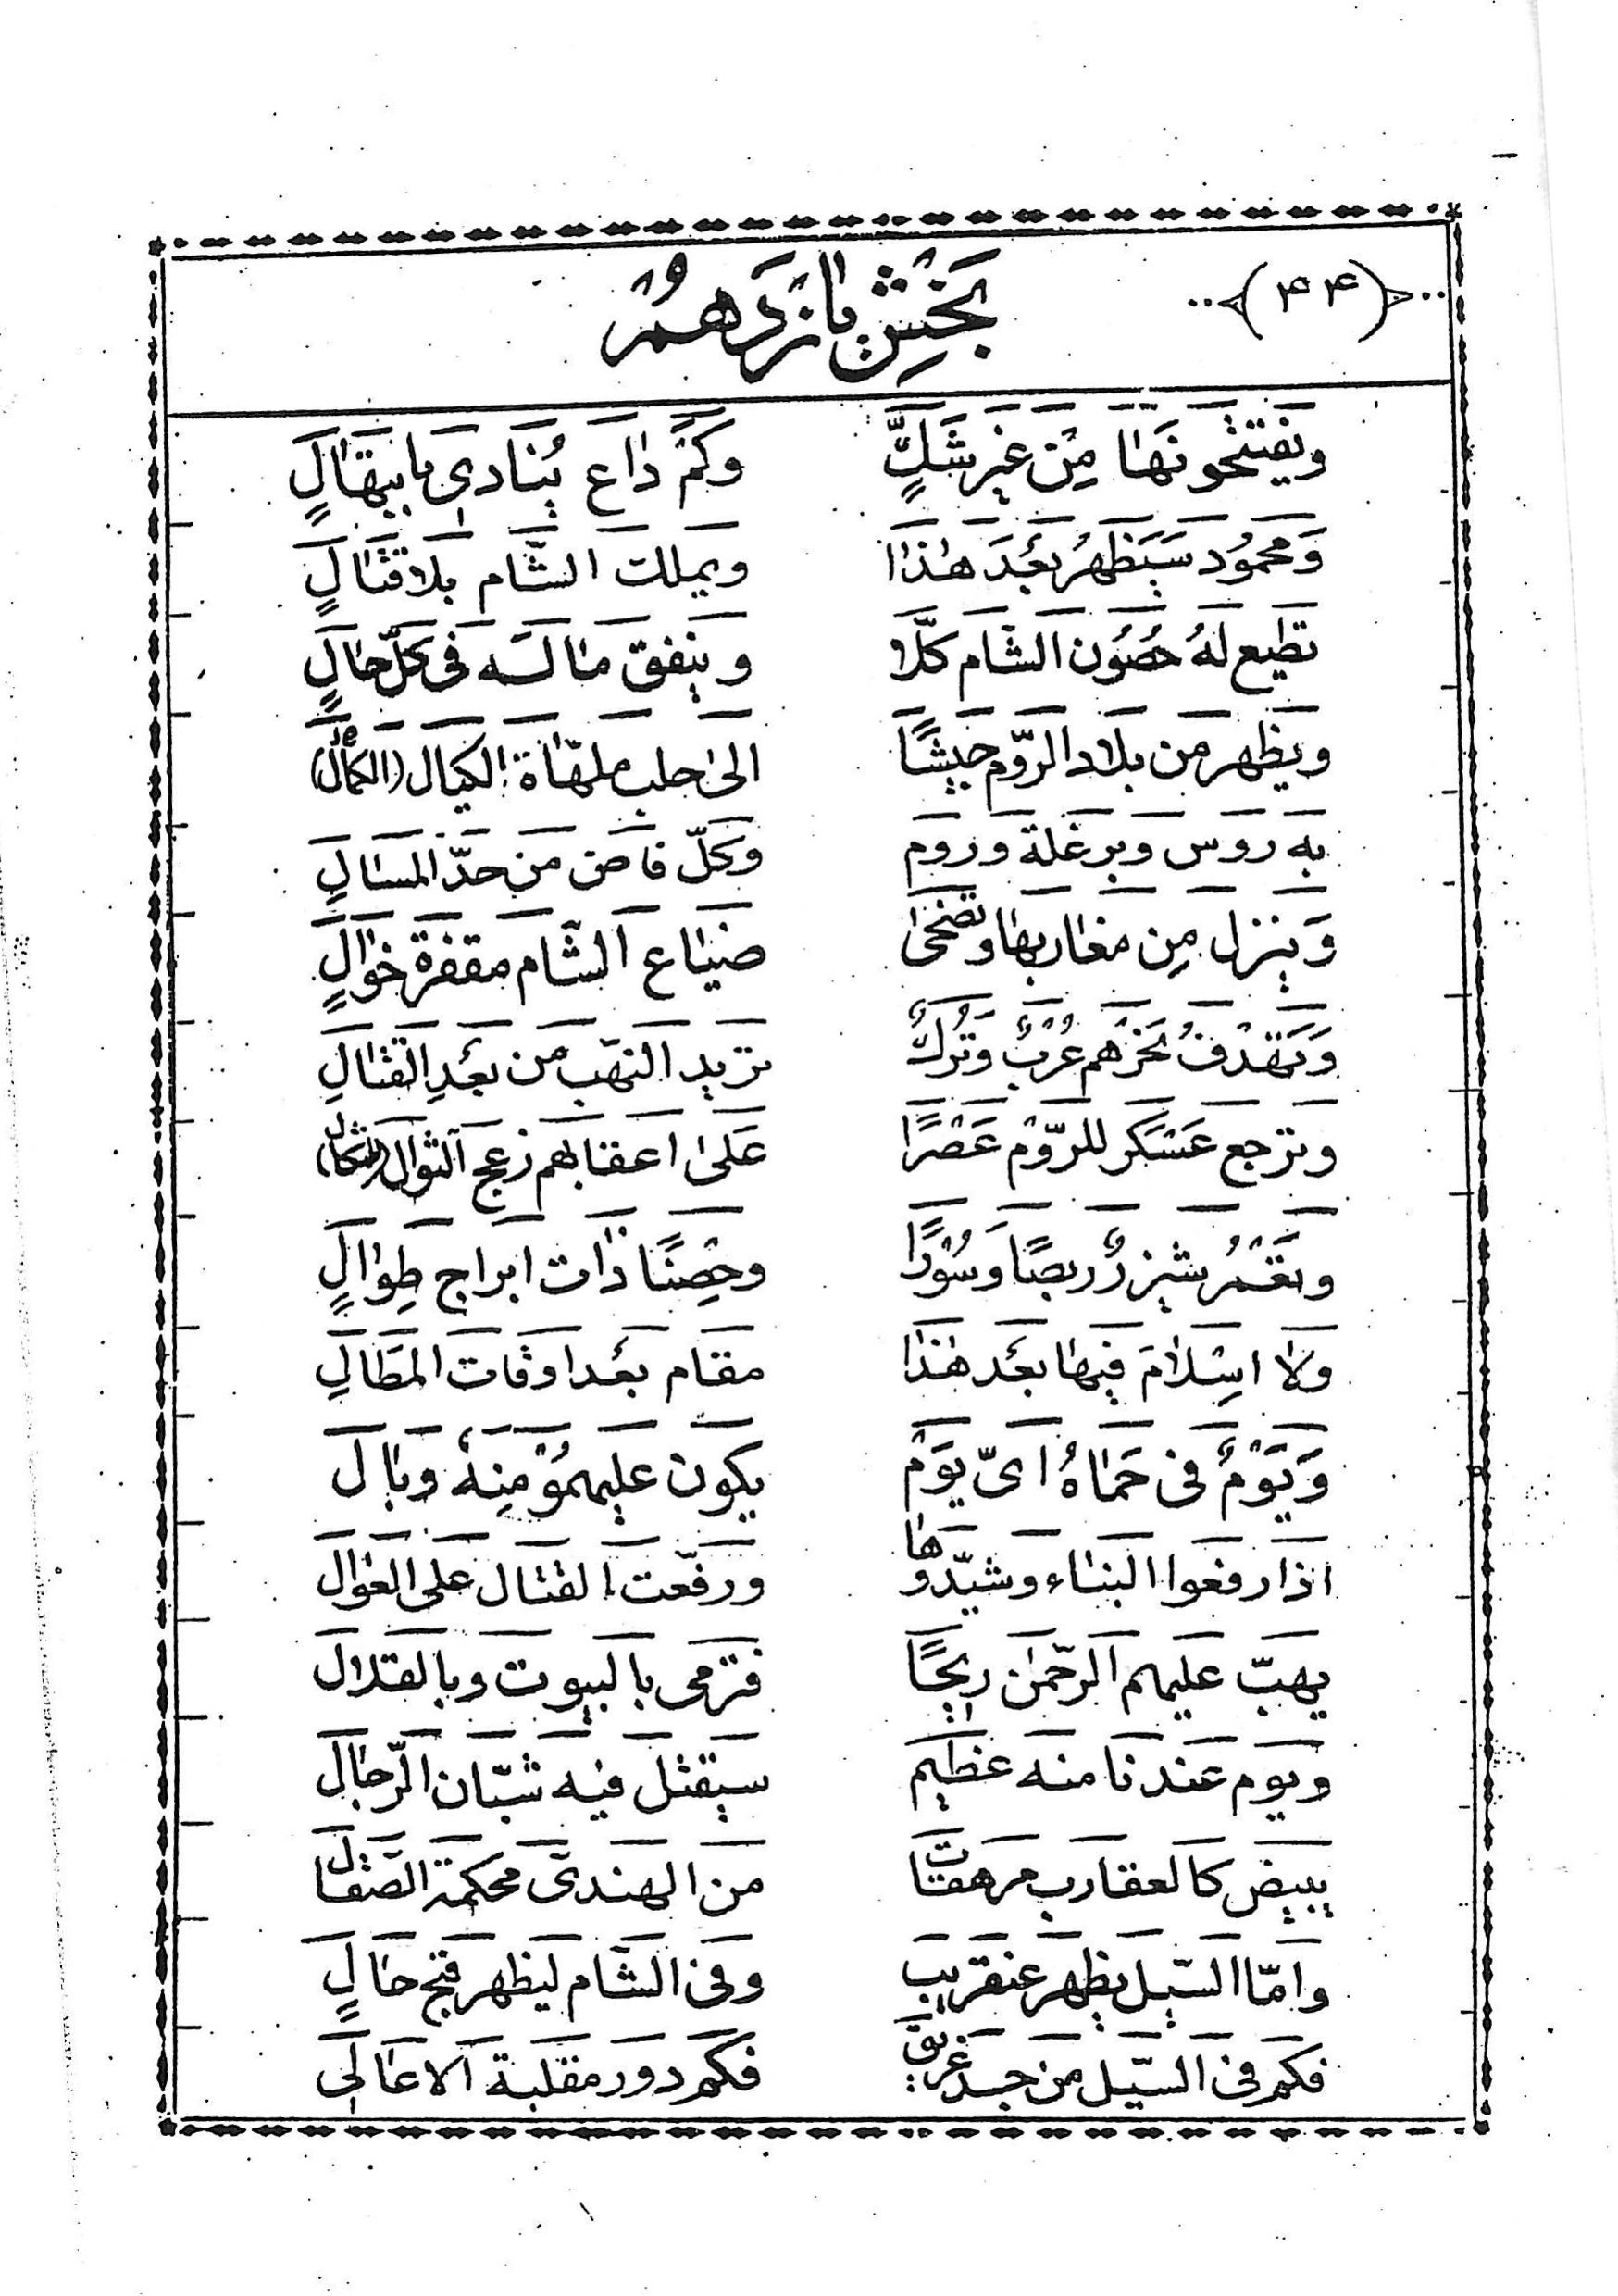 (۴۴)
بَخْشِ پانزدَهُمْ
ويفتتحونَها مِن غيرِ شَكٍّ وكَمْ داعٍ يُنادي بابتِهالٍ
وَمحمُود سَيَظهرُ بَعْدَ هذا ويملك الشّام بلا قتالٍ
تطيع لهُ حصُون الشام كلّا وينفق مٰالَه في كلّ حالٍ
ويظهر من بلاد الرّوم جيشًا الىٰ حلب ملهّاة الكيال (الكمال)
به روس وبرغلة وروم وكلّ قاص من حدّ المسالِ
وَينزل مِن مغاربها وتضحىٰ ضياع الشّام مقفرة خوالٍ
وَيَهْدفُ نحْرَهم عُرْبٌ وتُركٌ تريد النهب من بَعْدِ القتالِ
وترجع عَسْكر للرّوْم عَصْرًا عَلىٰ اعقابهم زعج الثوال (الثكال)
وتعْمُر شيزرٌ ربضًا وَسُوْرًا وحِصْنًا ذات ابراج طِوالٍ
ولا اسِلامَ فيها بعْد هٰذا مقام بعْد اوقات المَطَالِ
وَيَوْمٌ في حَماهُ ايّ يَوْم يكون عليهمُوْ مِنهُ وبال
اذا رفعوا البناء وشيّدوها ورفّعت القتال على العَوال
يهبّ عليهم الرّحمٰن ريحًا فترمى بالبيوت وبالقلال
ويوم عندنا منه عظيم سيقتل فيه شبّان الرّجال
ببيض كالعقارب مرهقات من الهندىّ محكمة الصّقال
وامّا السّيل يظهر عنقريب وفي الشام ليظهر فتح حٰالٍ
فكم في السّيل من جسد غريق فكم دور مقلبة الاعالي